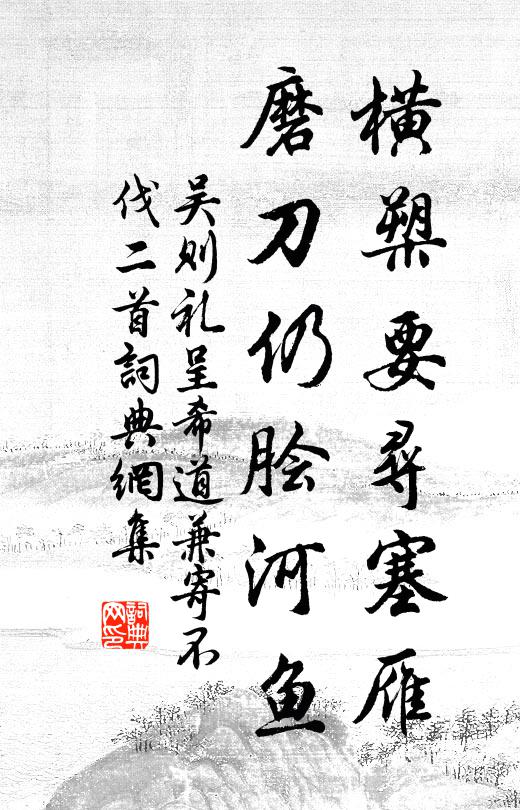 横槊要尋塞雁
磨刀仍脍河鱼
吴则礼呈希道兼寄不
伐二首詞典網集
詞典
网印